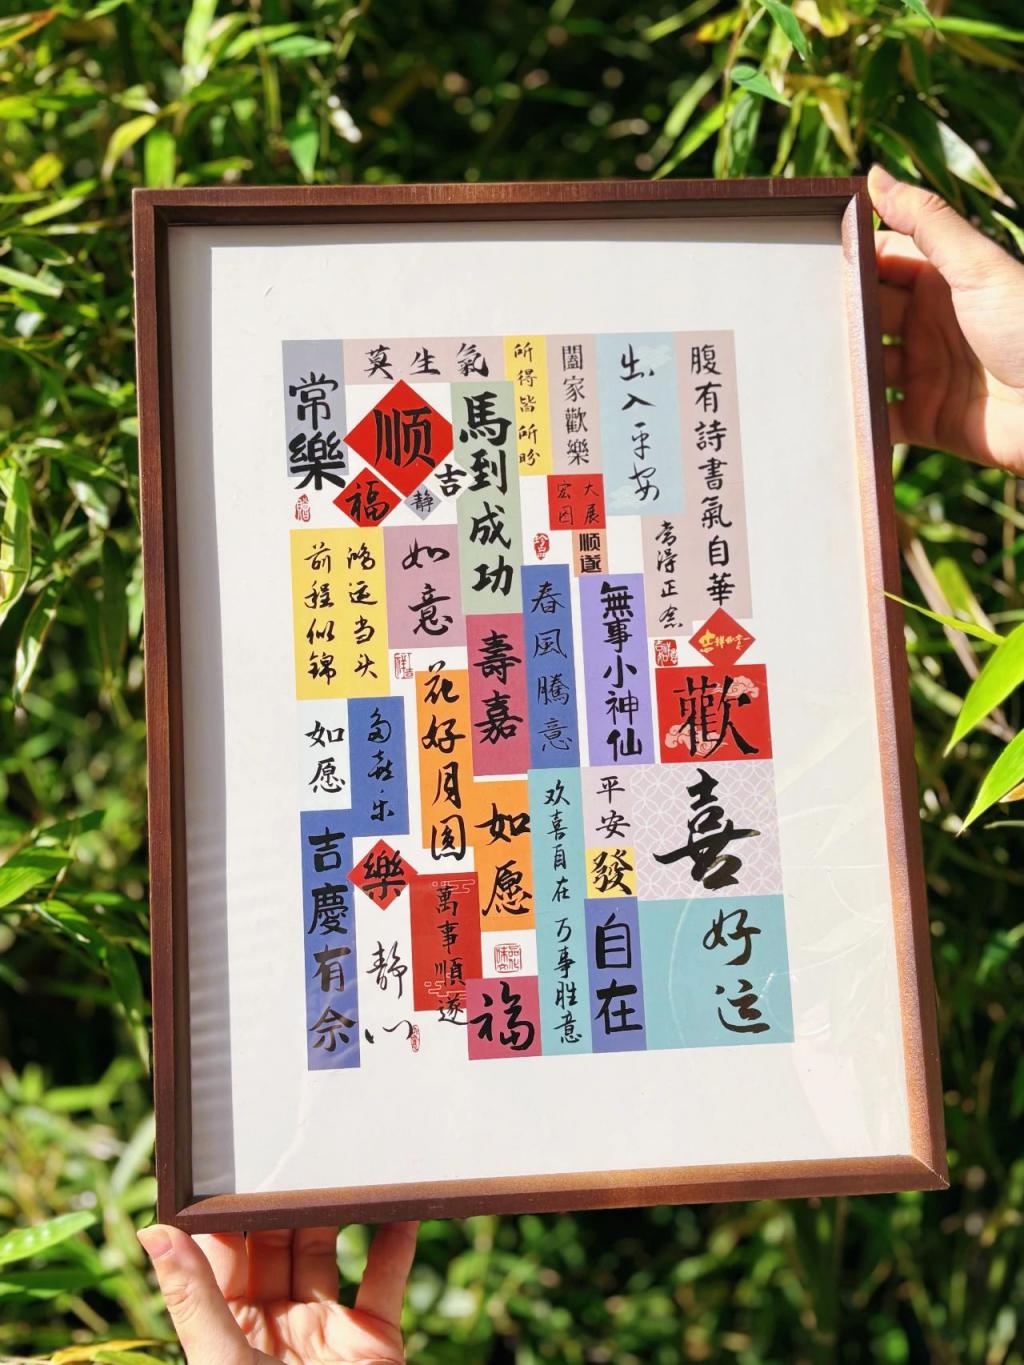 常樂
莫生氣
顺
福
静
吉
馬到成功
所得皆所盼
闔家歡樂
出入平安
腹有詩書氣自華
大展
宏图
顺遂
常得正念
鴻运当头
前程似锦
如意
壽嘉
春風騰意
無事小神仙
歡
喜
花好月圆
如愿
多喜乐
吉慶有余
樂
静心
萬事順遂
如愿
福
欢喜自在 万事胜意
平安
發
自在
好运